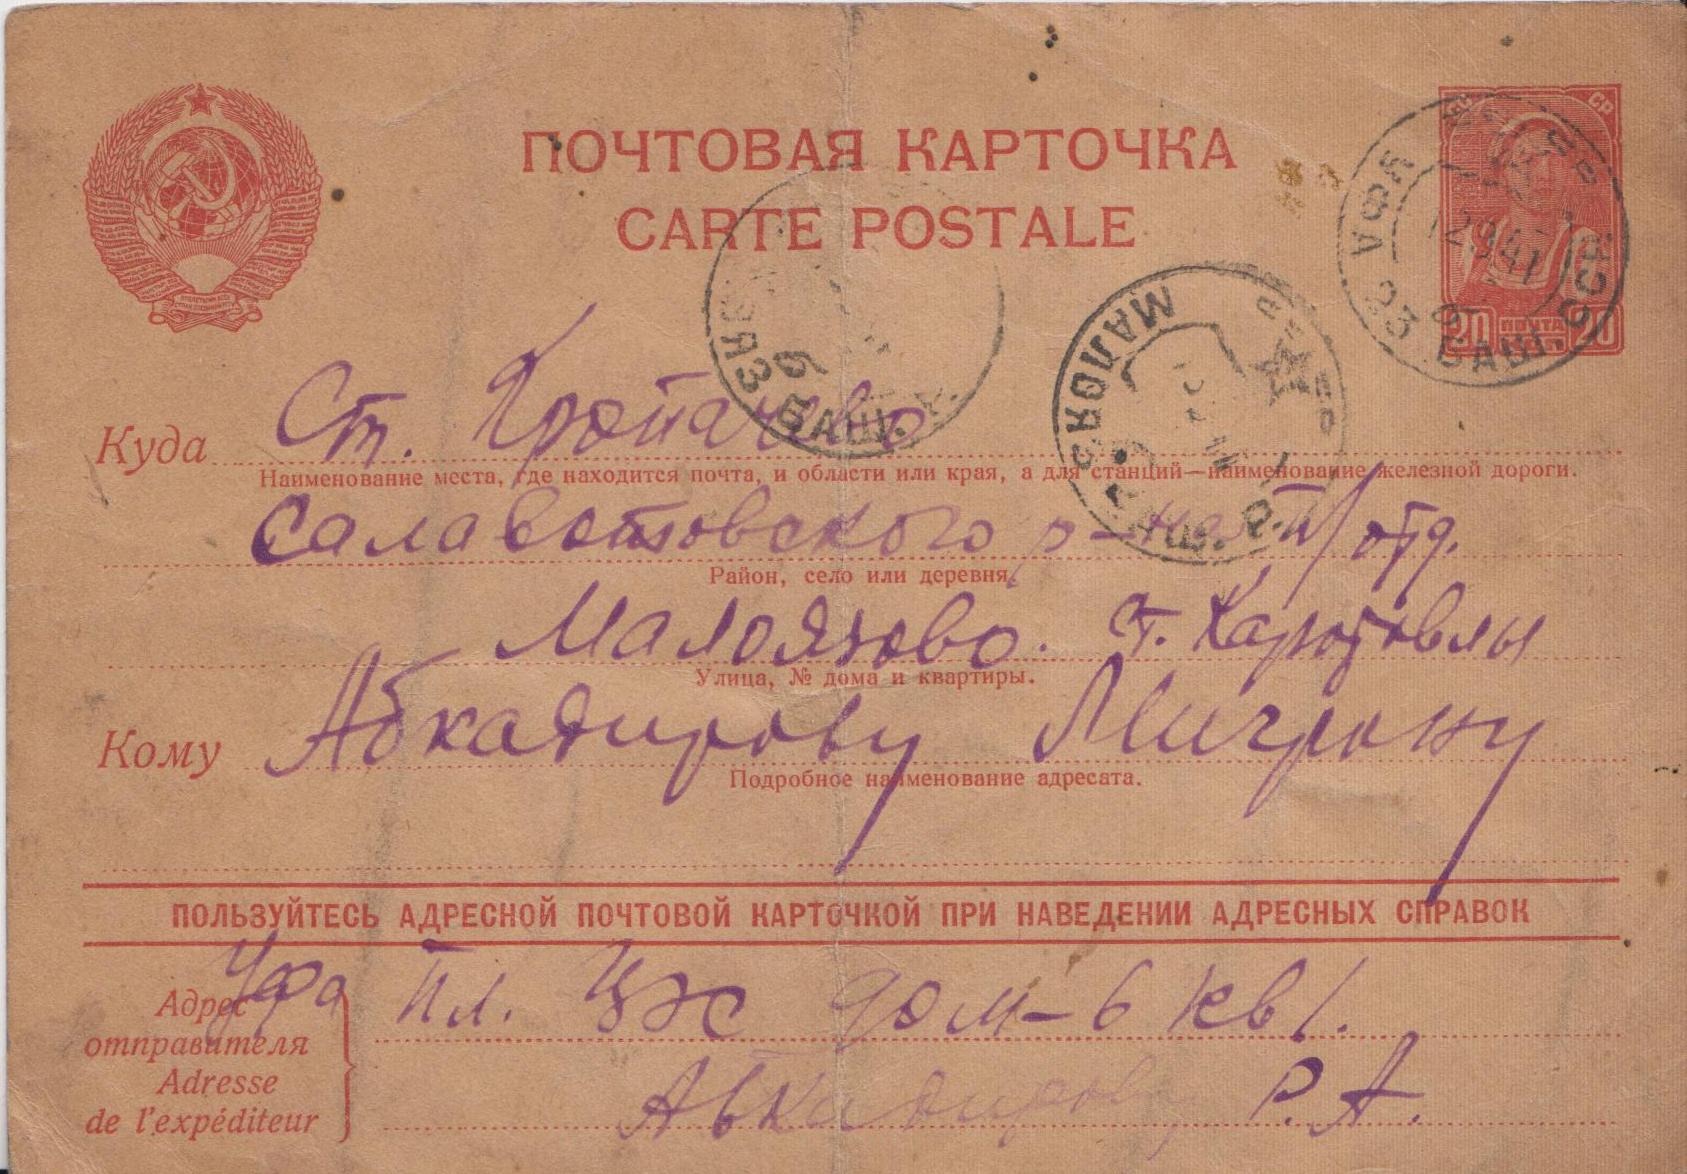 ПОЧТОВАЯ КАРТОЧКА
CARTE POSTALE
УФА 23 БАШ. ССР
12 9 41
20 ПОЧТА 20
МАЛОЯЗ БАШ.
ЯЗ БАШ.
6
Куда Ст. Кропачево
Наименование места, где находится почта, и области или края, а для станций—наименование железной дороги.
Салаватовского р-на п/отд.
Район, село или деревня
Малоязово. ст.
Улица, № дома и квартиры.
Кому Абкадирову Мигрону
Подробное наименование адресата.
ПОЛЬЗУЙТЕСЬ АДРЕСНОЙ ПОЧТОВОЙ КАРТОЧКОЙ ПРИ НАВЕДЕНИИ АДРЕСНЫХ СПРАВОК
Уфа Пл. ЦЭС дом-6 кв 1.
Адрес
отправителя
Adresse
de l'expéditeur
Абкадирову Р. А.